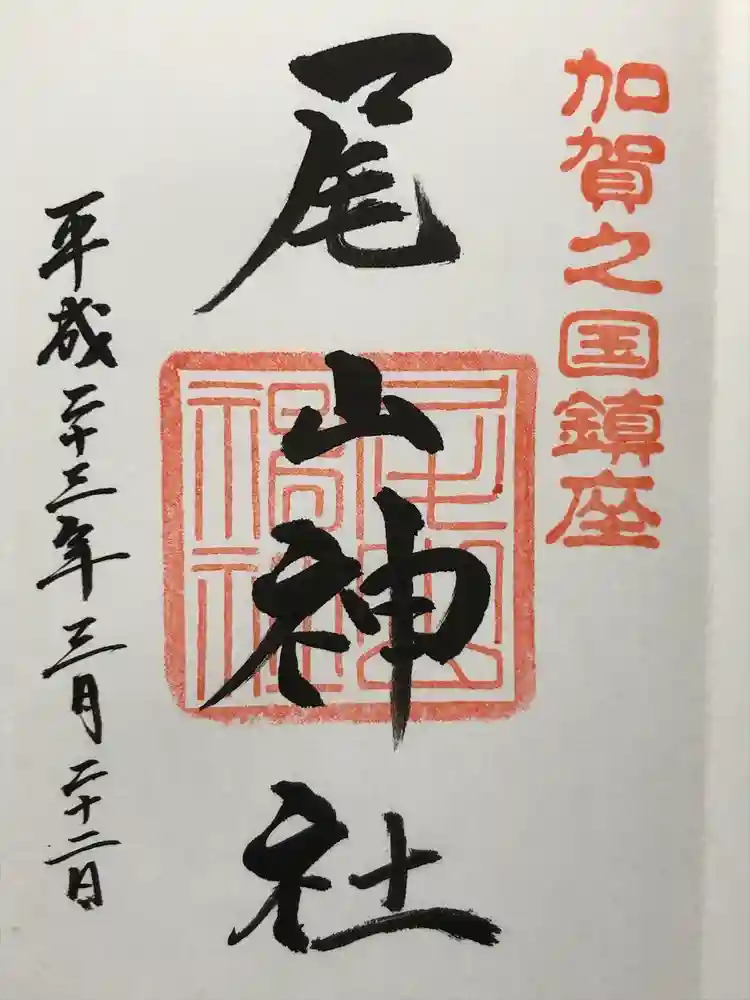 加賀之国鎮座
尾山神社
平成二十三年三月二十二日